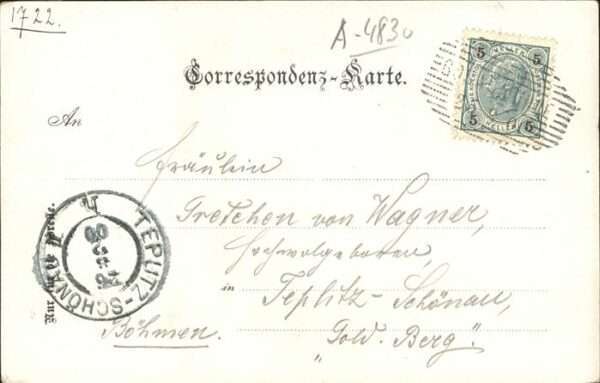 1722.
A-4830
Correspondenz-Karte.
5 5
HELLER
5 5
An
Fräulein
Gretchen von Wagner,
Hochwolgeboren,
in Teplitz-Schönau,
Böhmen. "Gold. Berg".
TEPLITZ-SCHÖNAU
Nur für die Adresse.